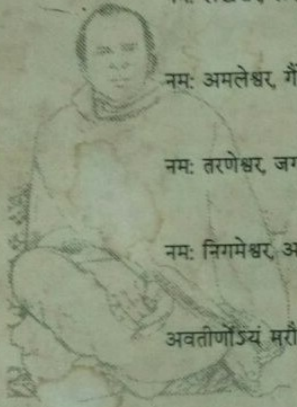 नम: अमलेश्वर, गैं
नम: तरणेश्वर, जग
नम: निगमेश्वर, अ
अवतीर्णोऽयं मरौ